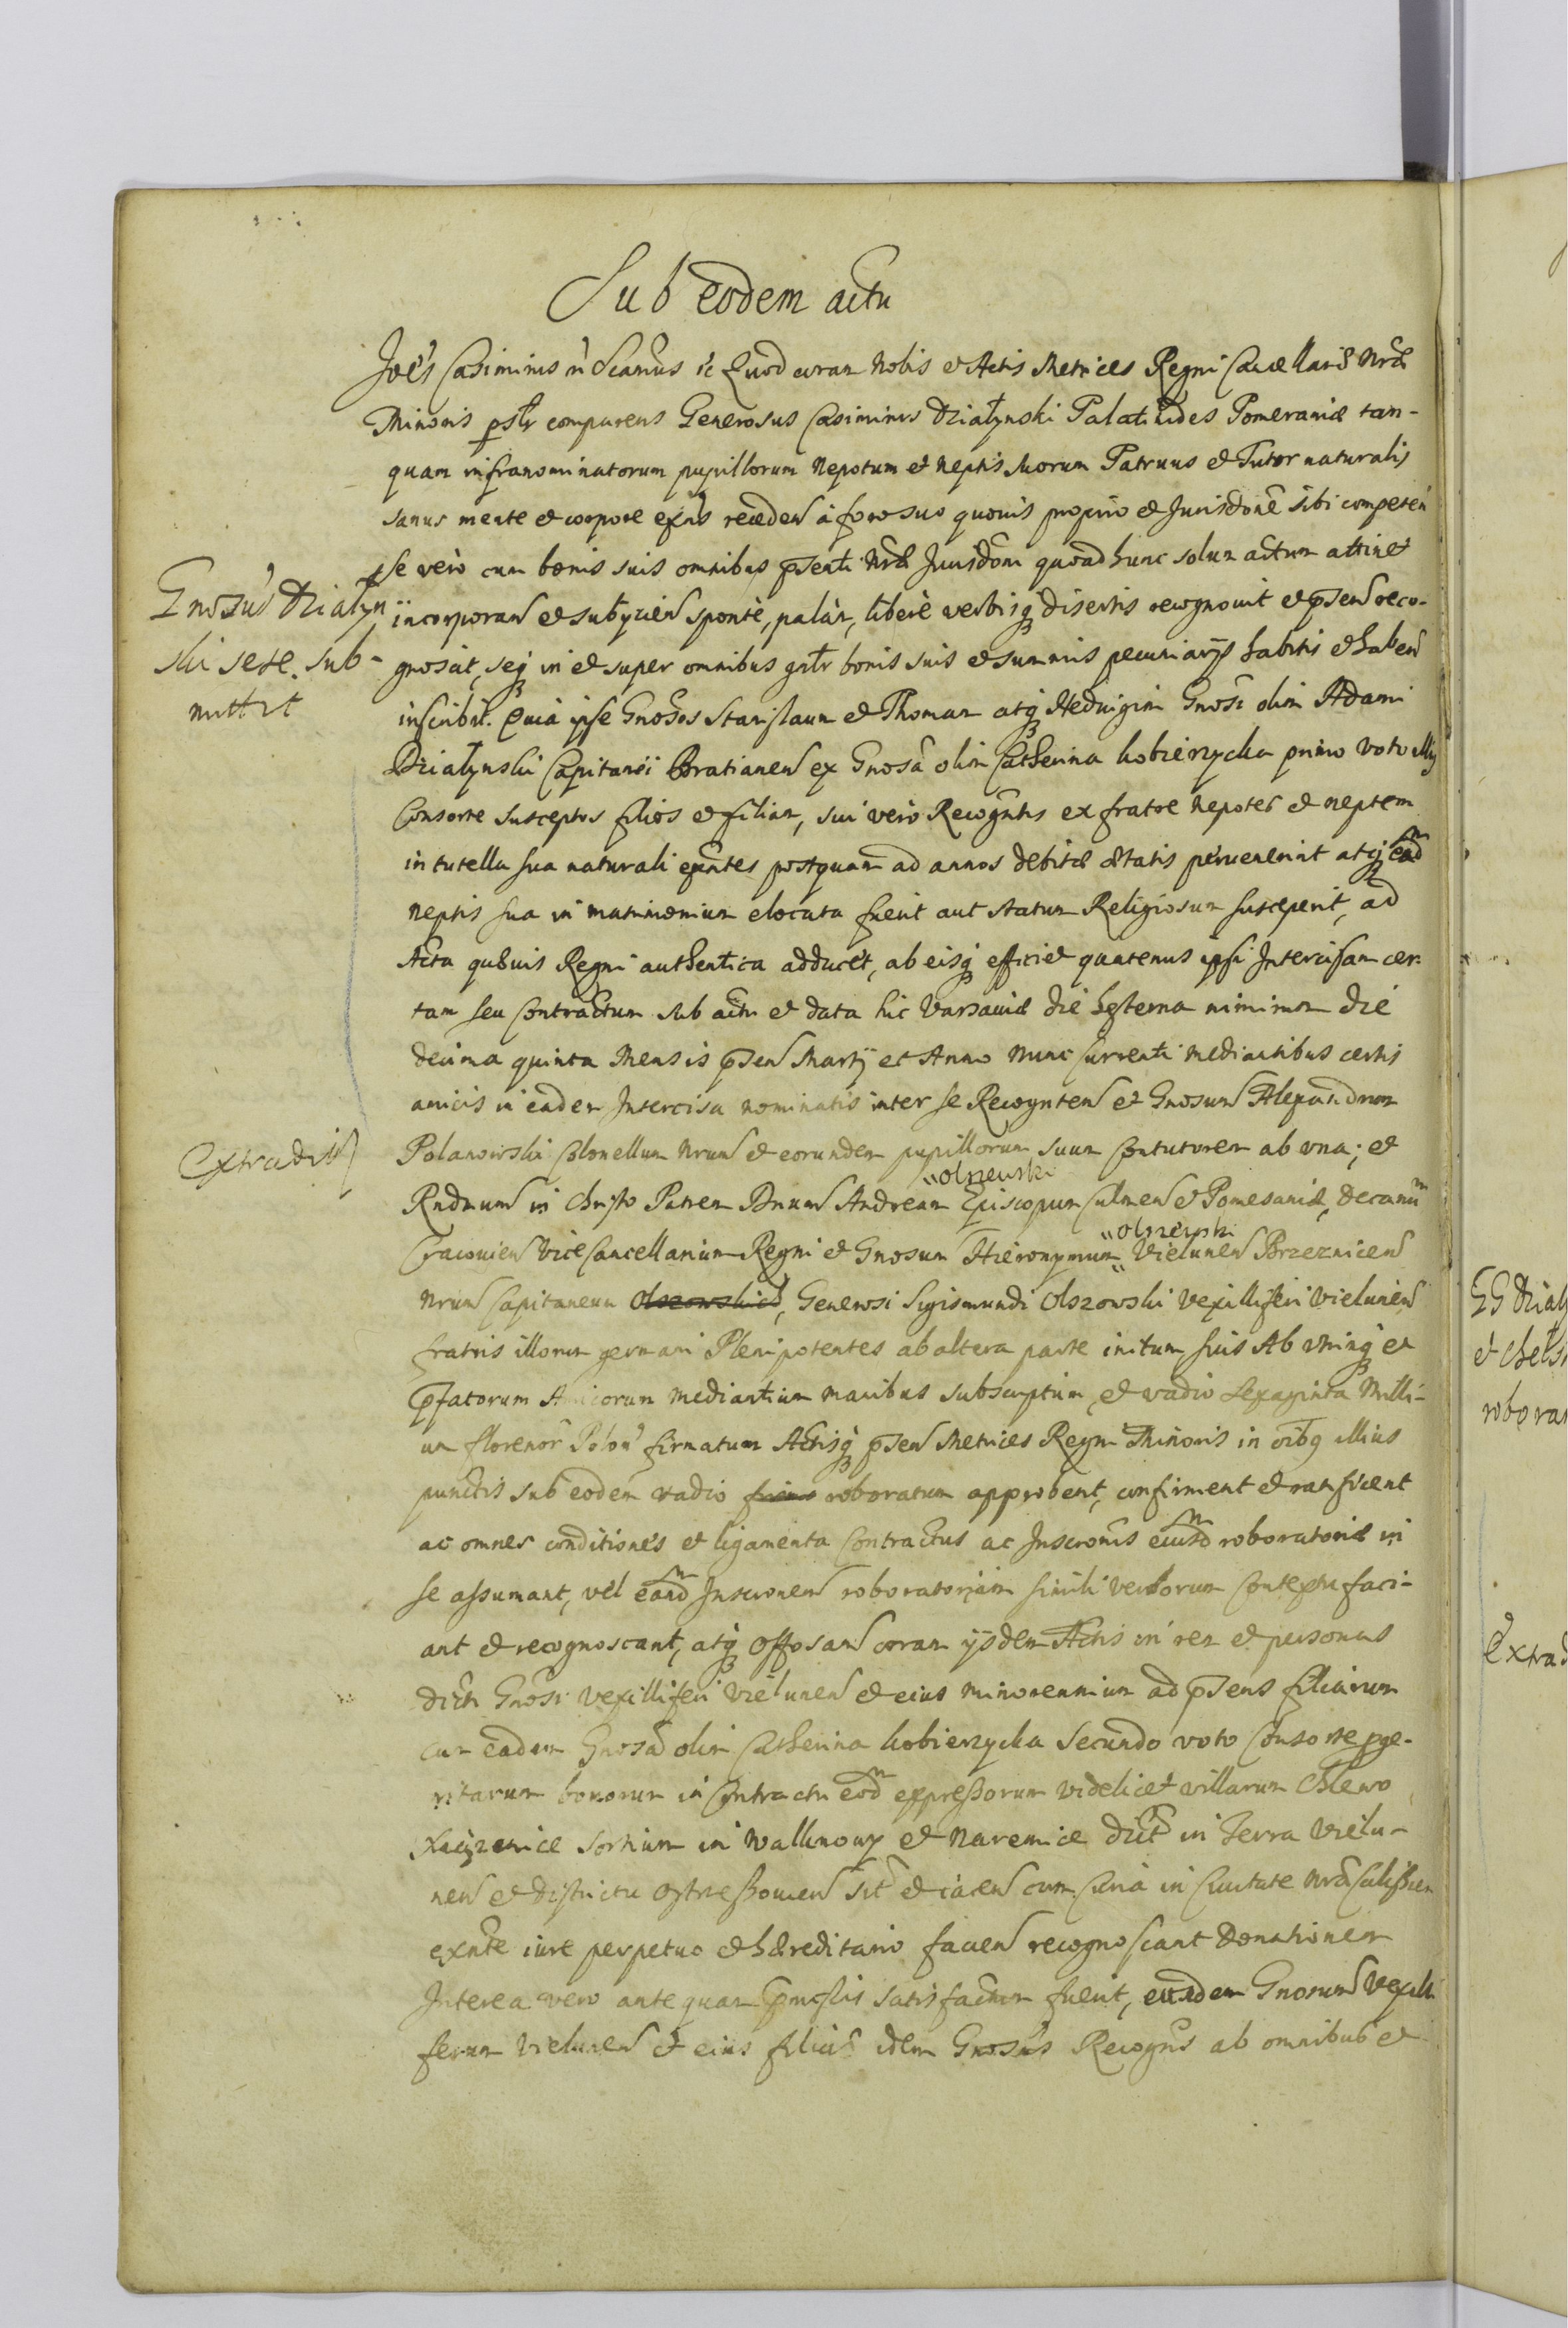 Sub eodem actu
Joes Casimirus n̄ Scamus ic Quod coram Nobis et Actis Metrices Regni Cancellariæ Nræ
Minoris psltr comparens Generosus Casimirus Działynski Palatinides Pomeraniæ tan-
quam infranominatorum pupillorum Nepotum et Neptis suorum Patruus et Tutor naturalis
sanus mente et corpore exns receden a foro suo quovis proprio et Jurisdone sibi competen
se vero cum bonis suis omnibus psenti Nræ Jurisdoni quoad hunc solum actum attinet
Gnosus Działyn
ski sese sub-
mittit
incorporan et subyicien sponte, palam, libere verbisq disertis recognovit et psen reco-
gnoscit, seq in et super omnibus gnltr bonis suis et summis pecuniarys habitis et haben
inscribit. Quia ipse Gnosos Stanislaum et Thomam atq Hedvigim Gnosi olim Adami
Działynski Capitanei Bratianen ex Gnosa olim Catherina Kobierzycka primo voto illius
Consorte susceptos filios et filiam, sui vero Recogntis ex fratre Nepotes et neptem
in tutella sua naturali exntes postquam ad annos debitæ ætatis pervenerint atq ead
neptis sua in matrimonium elocata fuerit aut statum Religiosum susceperit, ad
Acta quævis Regni authentica adducet, ab eisq efficiet quatenus ipsi Intercisam cer-
tam seu Contractum sub actu et data hic Varsaviæ die hesterna nimirum die
decima quinta Mensis psen Marty et Anno nunc currenti mediantibus certis
amicis in eadem Intercisa nominatis inter se Recognten et Gnosum Alexandrum
Extradit
Polanowski Colonellum Nrum et eorundem pupillorum suum Contutorem ab una; et
Olszewski
Rndnum in Christo Patrem Dnum Andream Episcopum Culmen et Pomesaniæ, Decanum
Olszewski
Cracovien Vice Cancellarium Regni et Gnosum Hieronymum Vielunen Brzeznicen
Nrum Capitaneum Olszowskich, Generosi Sigismundi Olszowski Vexilliferi Vielunen
fratris illorum germani Plenipotentes ab altera parte initum suis Ab utrinq et
pfatorum Amicorum mediantium manibus subscriptum, et vadio sexaginta Milli-
um florenor Polon firmatum Actisq psen Metrices Regni Minoris in oibq illius
punctis sub eodem vadio roboratum approbent, confirment et ratificent
ac omnes conditiones et ligamenta Contractus ac Inscronis eiusd roboratoriæ in
se assumant, vel eand Inscronem roboratoriam simili verborum Contextu faci-
ant et recognoscant, atq coram ysdem Actis in rem et personas
dicti Gnosi Vexilliferi Vielunen et eius minorennium ad psens filiarum
cum eadem Gnosa olim Catherina Kobierzycka secundo voto Consorte pge-
nitarum bonorum in Contractu eod expressorum videlicet villarum Chlewo
sortium in et Naremice dict in Terra Vielu-
nen et districtu Ostrzessovien sit et iacen cum Curia in Civitate Nra Calissien
exnte iure perpetuo et hæreditario facien recognoscant Donationem
Interea vero antequam præmissis satisfactum fuerit, eundem Gnosum Vexilli
ferum Vielunen et eius filias idem Gnosus Recogns ab omnibus et
GG Dział
et Chels
robora
Extrad